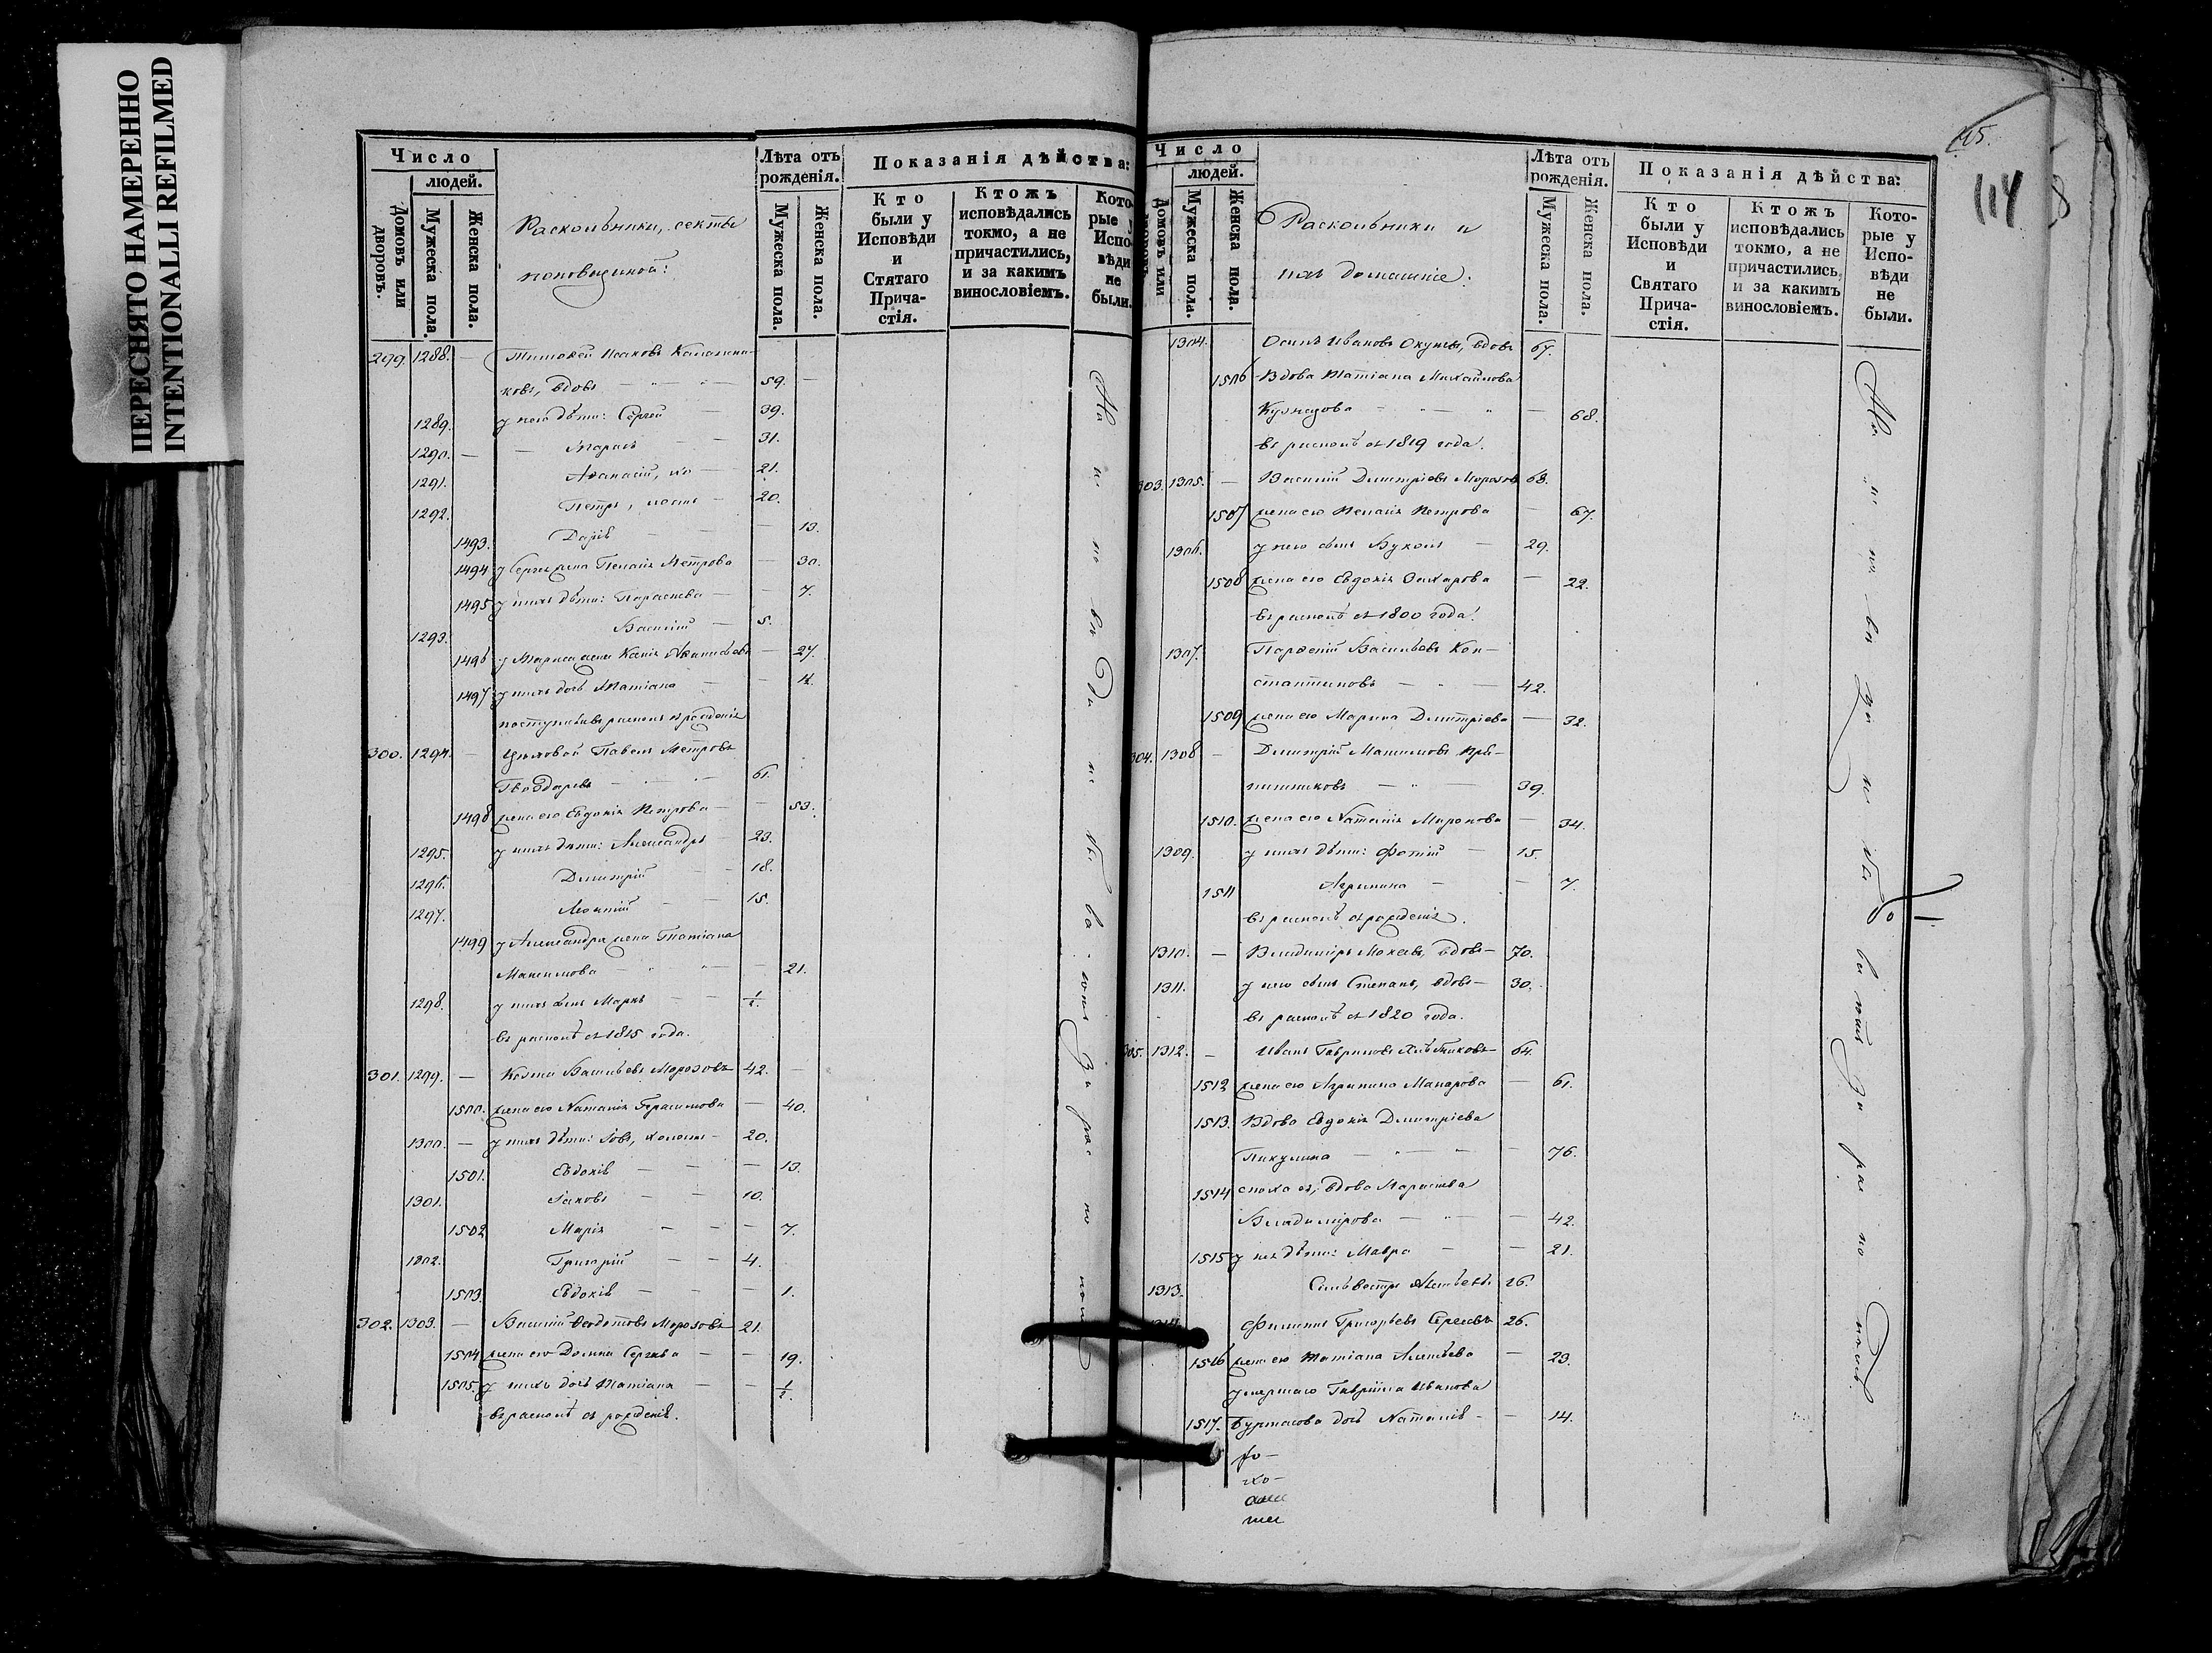 ПЕРЕСНЯТО НАМЕРЕННО
INTENTIONALLI REFILMED
Число
людей.
Домовъ или дворовъ.
Мужеска пола.
Женска пола.
Раскольники, секты
поповщиной:
Лѣта отъ рожденія.
Мужеска пола.
Женска пола.
Показанія дѣйства:
Кто были у Исповѣди и Стятаго Причастія.
Ктожъ исповѣдались токмо, а не причастились, и за какимъ винословіемъ.
Которые у Исповѣди не были.
299. 1288. — Тимоѳей Исаковъ
ковъ, вдовъ — 59. —
1289. у него дѣти: Сергей — 39.
1290. — Тарасъ — 31.
1291. Аѳанасій, — 21.
1292. Петръ, — 20.
1493. Дарія — 13.
1494 у Сергея жена Пелагія Петрова — 30.
1495 у нихъ дѣти: Параскева — 7.
1293. Василій — 5.
1496 у Тараса жена Ксенія — 27.
1497 у нихъ дочь Татіана — 4.
въ расколѣ отъ рожденія
300. 1294. — Цеховой Павелъ Петровъ
Гвоздаревъ — 61.
1498 жена его Евдокія Петрова — 53.
1295. у нихъ дѣти: Александръ — 23.
1296. Димитрій — 18.
1297. Леонтій — 15.
1499 у Александра жена Татіана
Максимова — 21.
1298. у нихъ сынъ Маркъ — 1/2.
въ расколѣ съ 1815 года.
301. 1299. — Козма Васильевъ Морозовъ 42. —
1500. жена его Наталія Герасимова — 40.
1300. — у нихъ дѣти: Іовъ, холостъ — 20.
1501. Евдокія — 13.
1301. Іаковъ — 10.
1502 Марія — 7.
1302. Григорій — 4.
1503. Евдокія — 1.
302. 1303. — Василій Ѳедотовъ Морозовъ 21.
1504 жена его Домна Сергѣева — 19.
1505. у нихъ дочь Татіана — 1/2.
въ расколѣ отъ рожденія.
На исповѣди не бывають за расколомъ
115.
114
Число
людей.
Домовъ или дворовъ.
Мужеска пола.
Женска пола.
Раскольники и
ихъ домашніе:
Лѣта отъ рожденія.
Мужеска пола.
Женска пола.
Показанія дѣйства:
Кто были у Исповѣди и Святаго Причастія.
Ктожъ исповѣдались токмо, а не причастились, и за какимъ винословіемъ.
Которые у Исповѣди не были.
1304. Осипъ Ивановъ Окуневъ, вдовъ 67.
1506 Вдова Татіана Михайлова
Кузнецова — 68.
въ расколѣ съ 1819 года.
303. 1305. — Василій Димитріевъ Морозовъ 68.
1507 жена его Пелагія Петрова — 67.
1306. у него сынъ Вуколъ — 29.
1508 жена его Евдокія Захарова — 22.
въ расколѣ съ 1800 года.
1307. Парѳеній Васильевъ Кон-
стантиновъ — 42.
1509 жена его Марина Димитріева — 32.
304. 1308 — Димитрій Максимовъ
39.
1510. жена его Наталія Миронова — 34.
1309. у нихъ дѣти: Фотій — 15.
1511 Агрипина — 7.
въ расколѣ отъ рожденія.
1310. — Владиміръ Мокеевъ, вдовъ — 70.
1311. у него сынъ Степанъ, вдовъ — 30.
въ расколѣ съ 1820 года.
305. 1312. — Иванъ Гавриловъ 64.
1512 жена его Агрипина Макарова — 61.
1513. Вдова Евдокія Димитріева
Пикулина — 76.
1514 сноха ея, вдова Параскева
Владимірова — 42.
1515 у нея дѣти: Мавра — 21.
1313. Сильвестръ 26.
1314. Филиппъ Григорьевъ 26.
1516 жена его Татіана — 23.
умершаго Гавріила Иванова
1517. дочь Наталія — 14.
На исповѣди не бывають за расколомъ